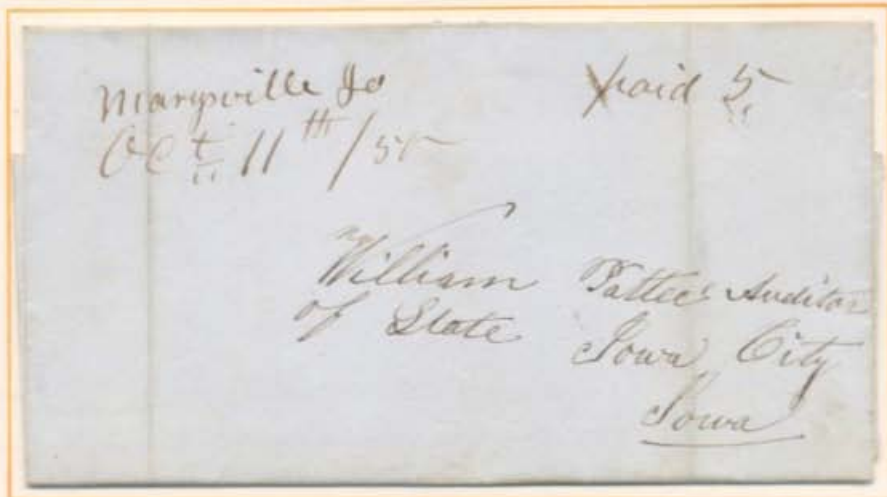 Marysville Io
Oct 11th /50
paid 5
William Pattee Auditor
of State
Iowa City
Iowa